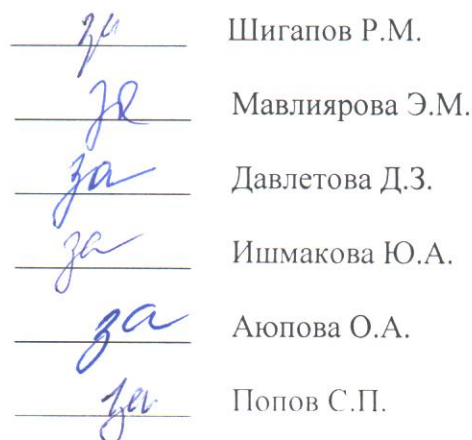 за Шигапов Р.М.
за Мавлиярова Э.М.
за Давлетова Д.З.
за Ишмакова Ю.А.
за Аюпова О.А.
за Попов С.П.